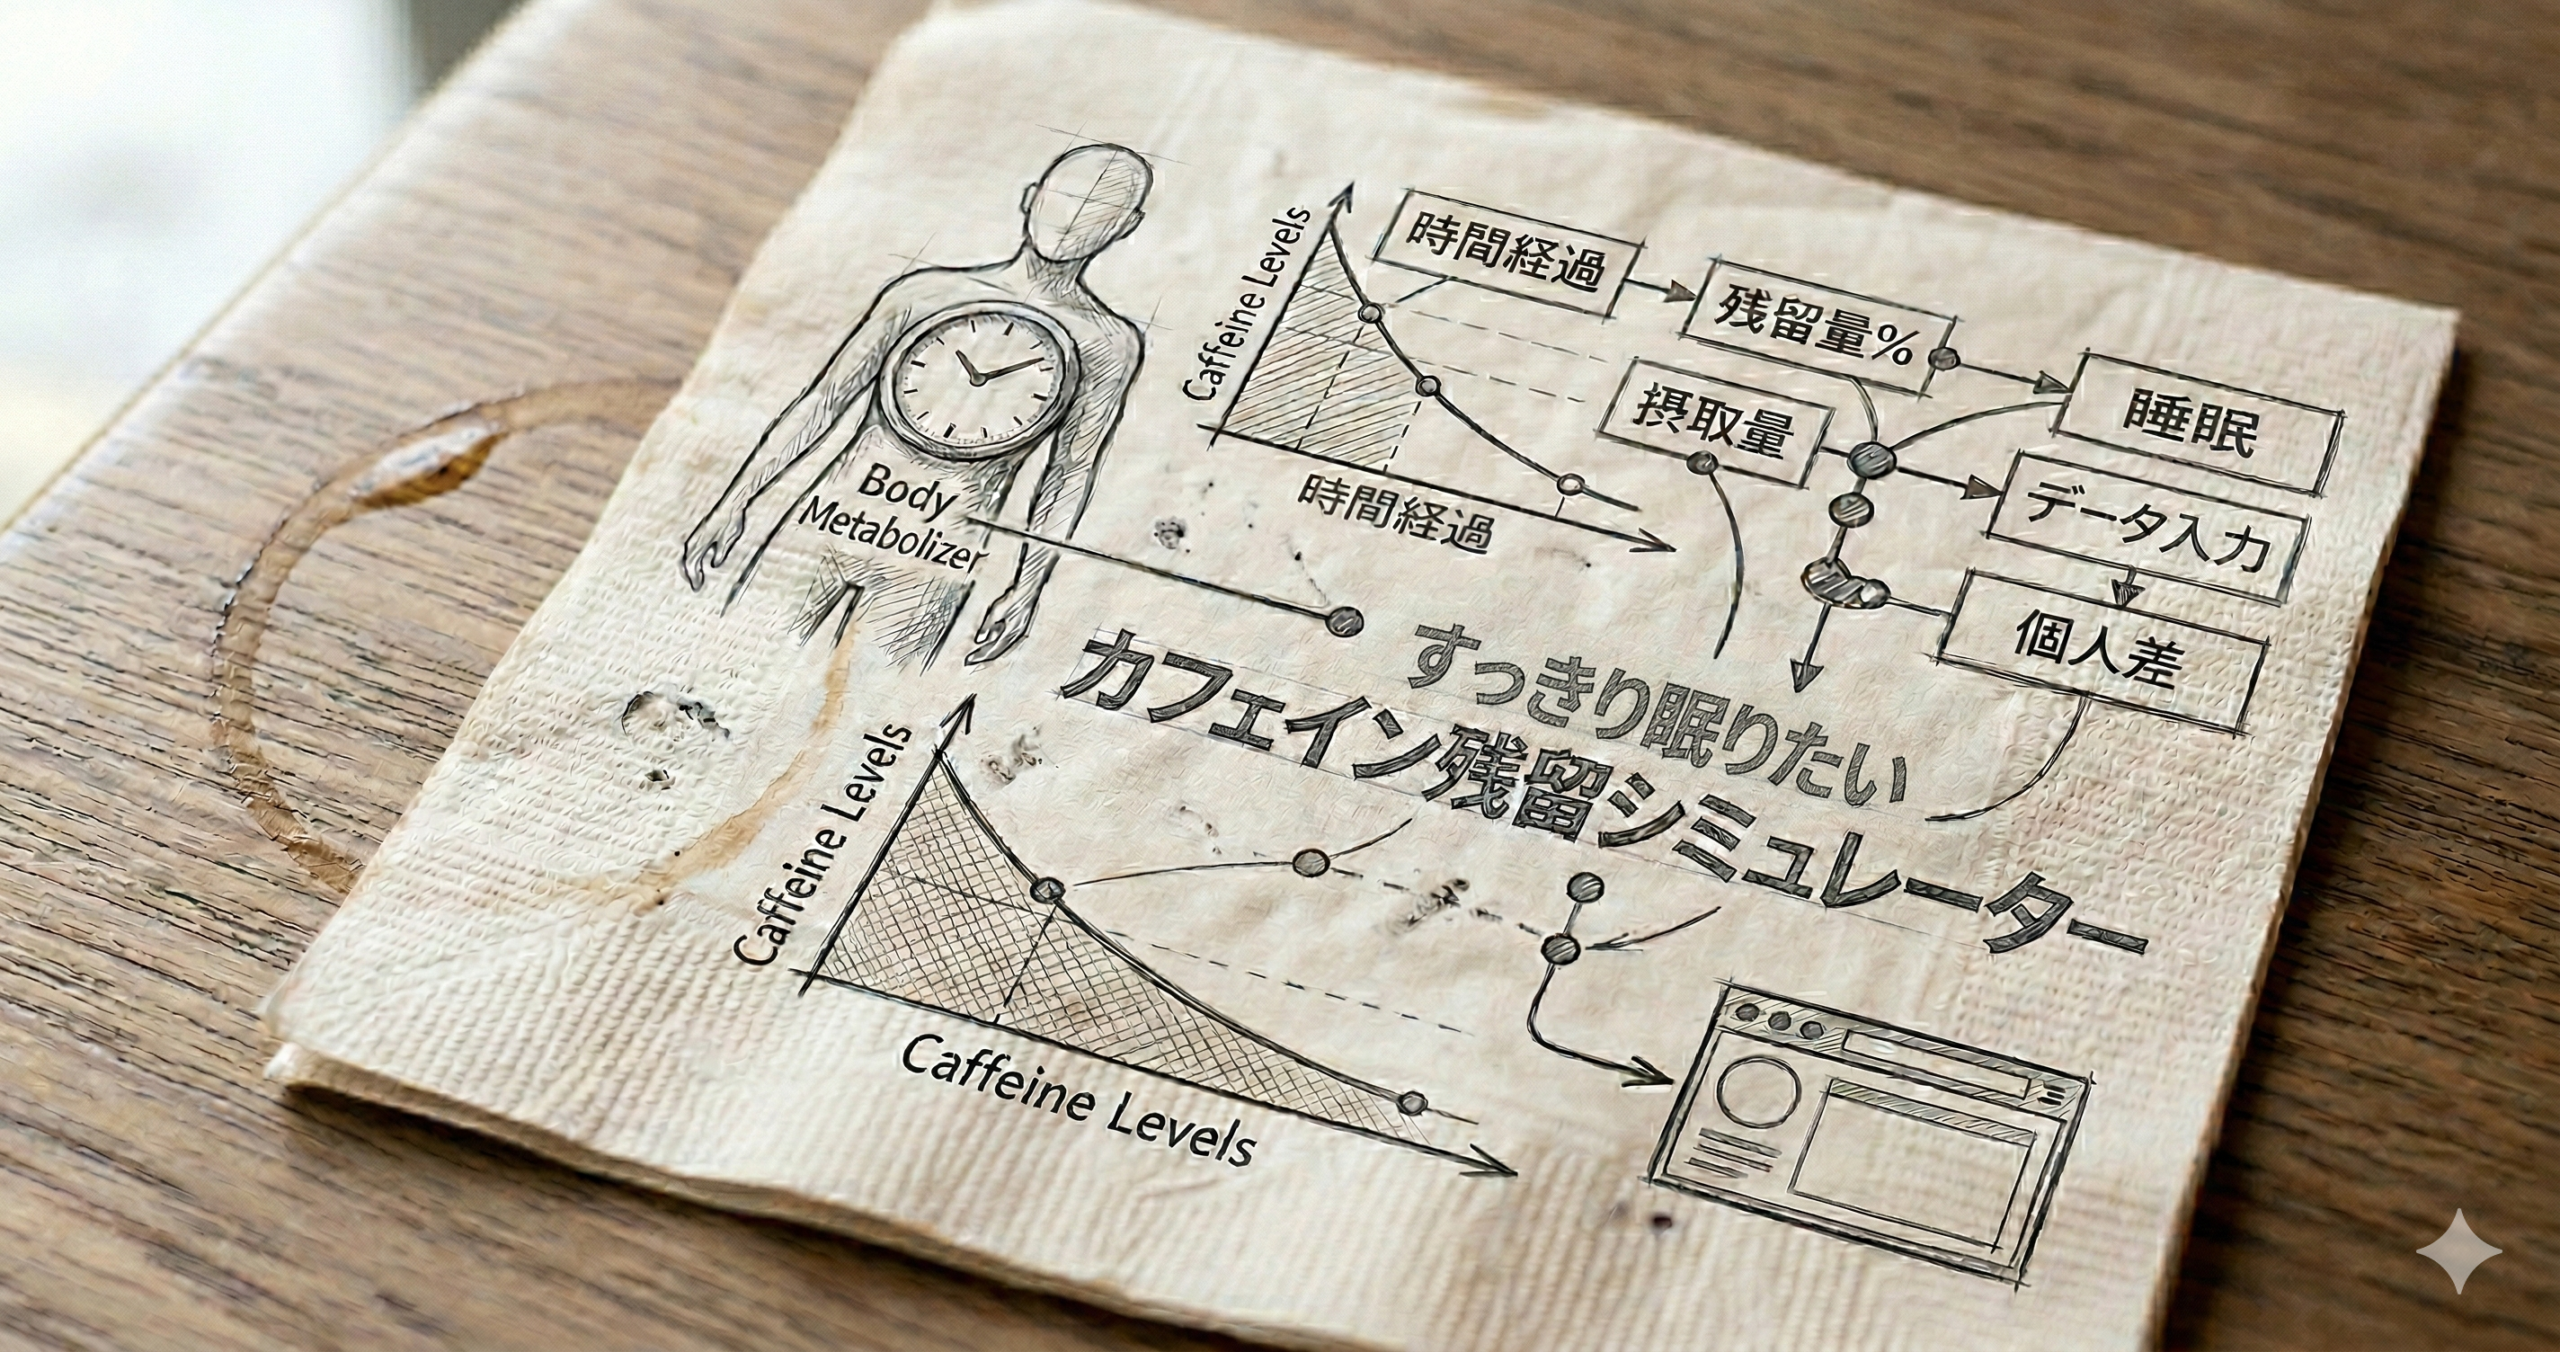 Caffeine Levels
時間経過
残留量%
摂取量
睡眠
データ入力
個人差
時間経過
Body
Metabolizer
すっきり眠りたい
カフェイン残留シミュレーター
Caffeine Levels
Caffeine Levels